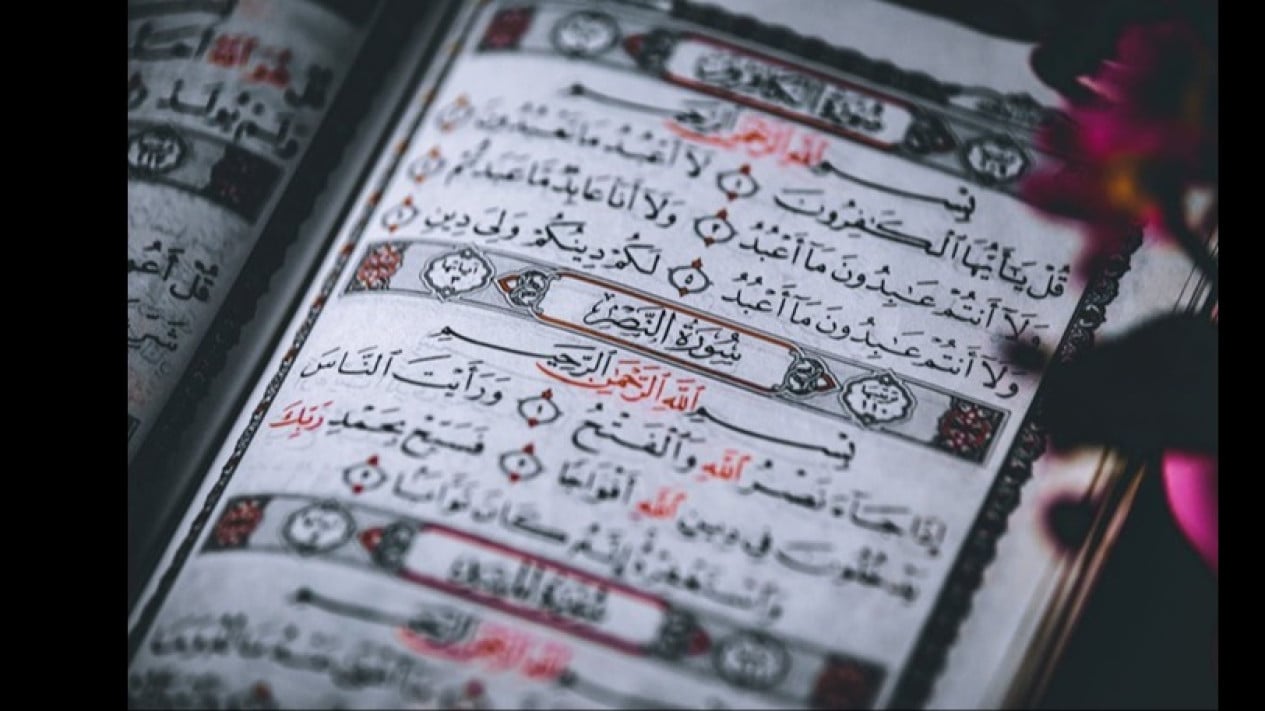 سُورَةُ الكَافِرُونَ
بِسْمِ ٱللَّهِ ٱلرَّحْمَٰنِ ٱلرَّحِيمِ
قُلْ يَٰٓأَيُّهَا ٱلْكَٰفِرُونَ ١ لَآ أَعْبُدُ مَا تَعْبُدُونَ ٢
وَلَآ أَنتُمْ عَٰبِدُونَ مَآ أَعْبُدُ ٣ وَلَآ أَنَا۠ عَابِدٌ مَّا عَبَدتُّمْ ٤
وَلَآ أَنتُمْ عَٰبِدُونَ مَآ أَعْبُدُ ٥ لَكُمْ دِينُكُمْ وَلِىَ دِينِ ٦
ترتيبها ١١٠ سُورَةُ النَّصْرِ آياتها ٣
بِسْمِ ٱللَّهِ ٱلرَّحْمَٰنِ ٱلرَّحِيمِ
إِذَا جَآءَ نَصْرُ ٱللَّهِ وَٱلْفَتْحُ ١ وَرَأَيْتَ ٱلنَّاسَ
يَدْخُلُونَ فِى دِينِ ٱللَّهِ أَفْوَاجًا ٢ فَسَبِّحْ بِحَمْدِ رَبِّكَ
وَٱسْتَغْفِرْهُ إِنَّهُۥ كَانَ تَوَّابًۢا ٣
سُورَةُ
بِسْمِ ٱللَّهِ ٱلرَّحْمَٰنِ ٱلرَّحِيمِ
قُلْ هُوَ ٱللَّهُ أَحَدٌ
وَلَمْ يُولَدْ
قُلْ
شَرِّ